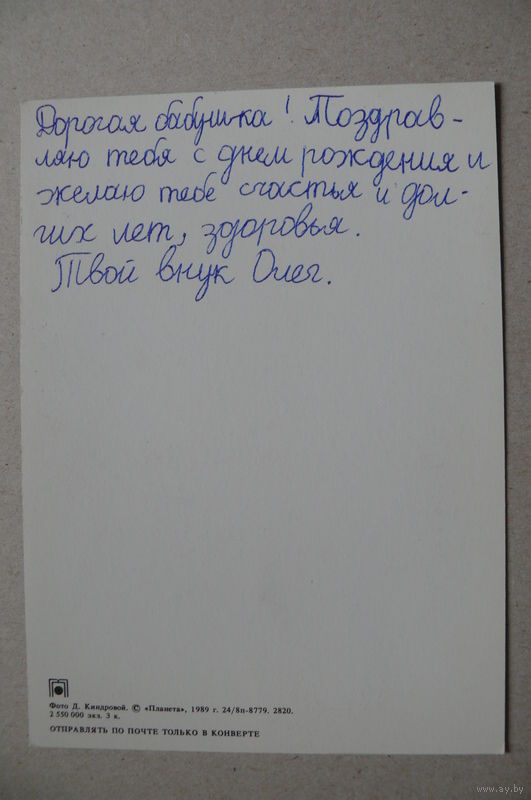 Дорогая бабушка! Поздрав-
ляю тебя с днем рождения и
желаю тебе счастья и дол-
гих лет, здоровья.
Твой внук Олег.
Фото Д. Киндровой. © «Планета», 1989 г. 24/8п-8779. 2820.
2 550 000 экз. 3 к.
ОТПРАВЛЯТЬ ПО ПОЧТЕ ТОЛЬКО В КОНВЕРТЕ
www.ay.by